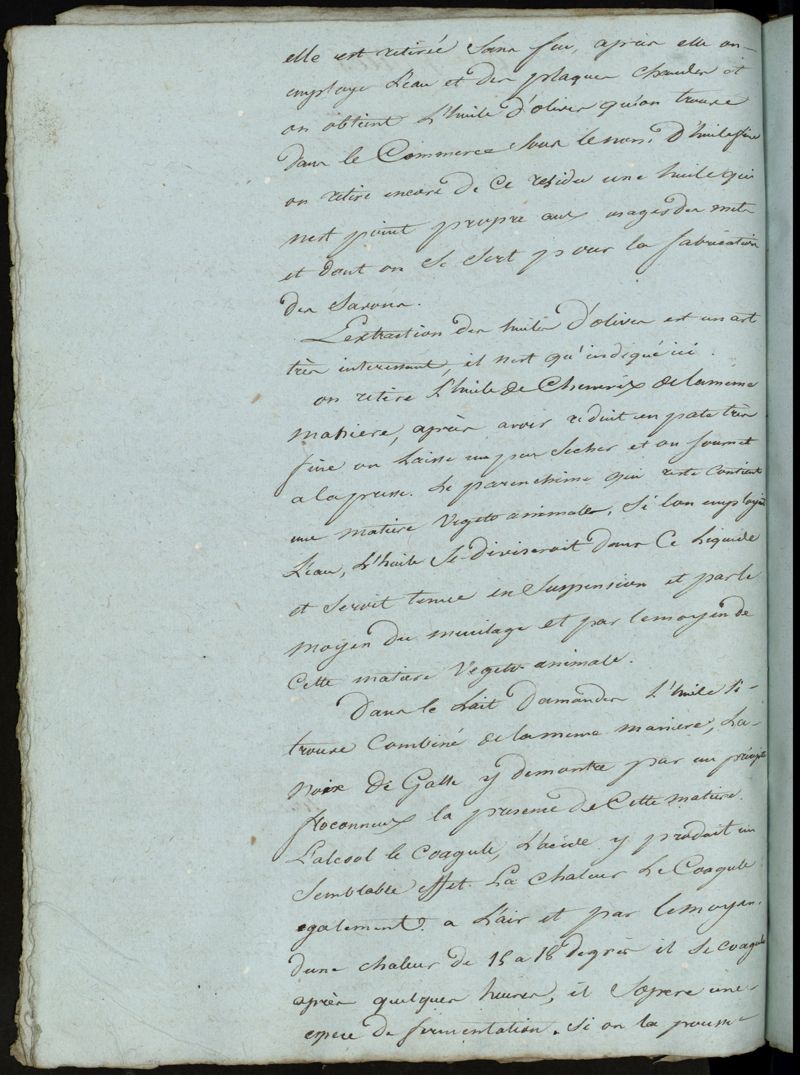 elle est retirée sans feu, après elle on
employe l'eau et des plaques chaudes et
on obtient l'huile d'olives qu'on trouve
dans le Commerce sous le nom d'huile fine
on retire encore de ce residu une huile qui
nest point propre aux usages des mets
et dont on se sert pour la fabrication
des savons.
L'extraction des huiles d'olives est un art
très interessant, il nest qu'indiqué ici.
on retire l'huile de Chenevix de la même
maniere, après avoir reduit en pate très
fine on laisse un peu secher et on soumet
a la presse. Le parenchime qui reste contient
une matiere vegeto animale, Si l'on employoit
l'eau, l'huile se diviseroit dans ce liquide
et seroit tenue en suspension et par le
moyen du mucilage et par le moyen de
cette matiere vegeto animale.
Dans le Lait d'amandes l'huile se
trouve combiné de la meme maniere, La
noix de Galle y demontre par un précipité
floconneux la presence de cette matiere.
L'alcool le coagule, l'acide y produit un
semblable effet. La chaleur le coagule
egalement. a l'air et par le moyen
d'une chaleur de 15 a 18 degrés il se coagule
après quelques heures, il s'opere une
espece de fermentation. Si on la pousse